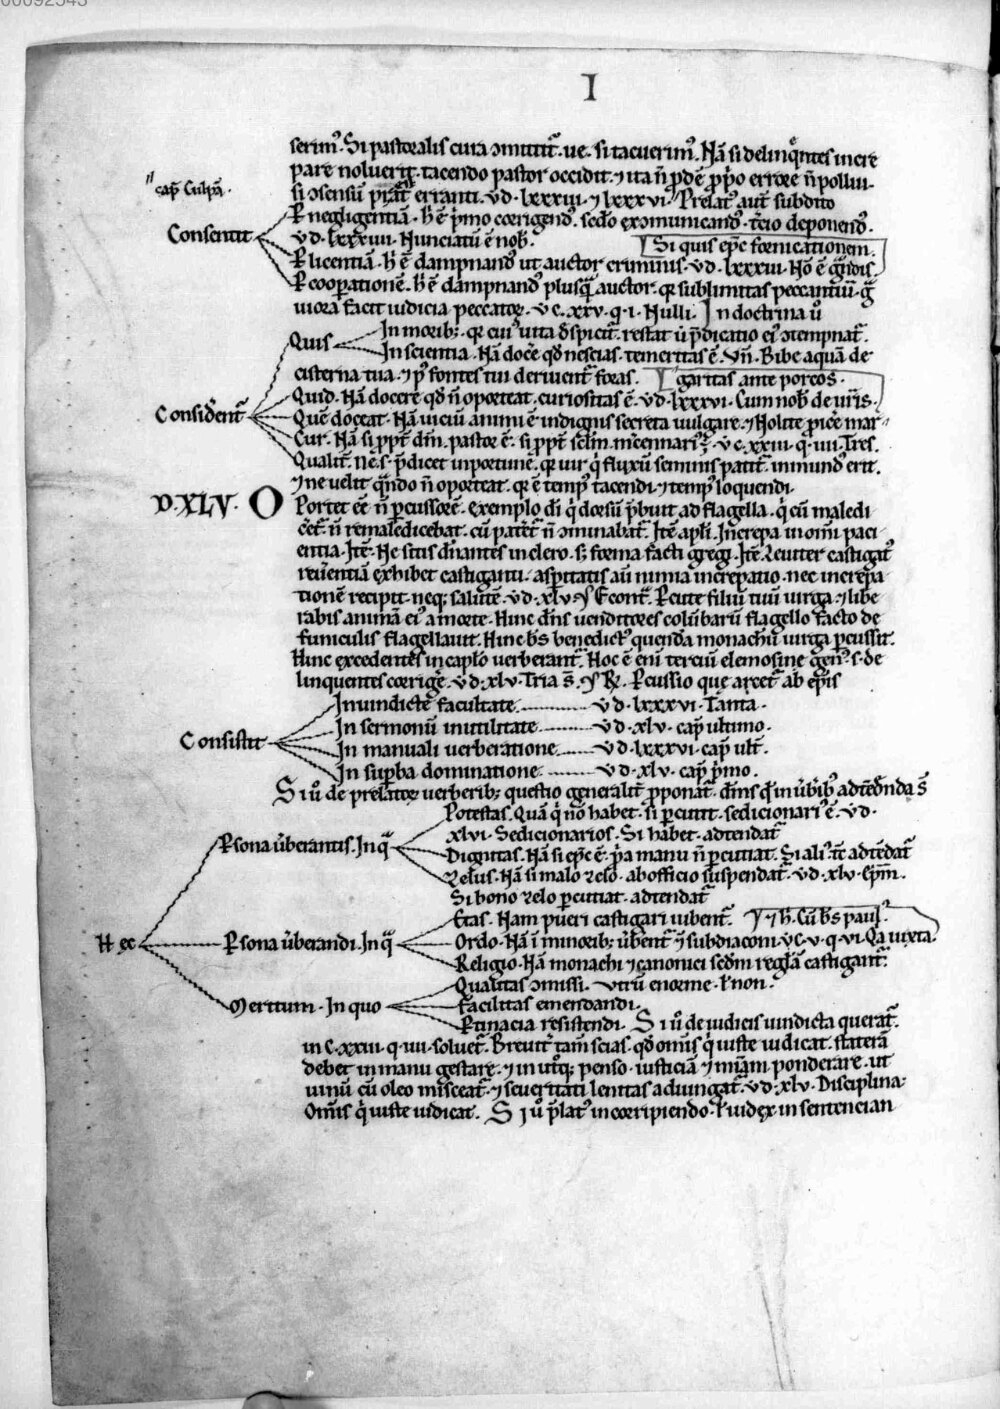 00092543
I
serimꝰ. Si pastoralis cura ɔmittit᷒. ue. si tacuerimꝰ. Nā si delinq̊ntes incre
pare noluerit. tacendo pastor occidit. ⁊ ita ñ ꝓdē ꝓp̄o errore ñ pollui.
cap̄ Culpā.
si ɔsensū p̄stat erranti. vd. lxxxiii. ⁊ lxxxvi. Prelatꝰ aut̄ subdito
Consentit
Ꝑ negligentiā. h̄ ē p̄mo corrigendꝰ. sedō exɔmunicandꝰ. t̄cio deponendꝰ.
vd. lxxxiiii. Nunciatū ē nob̄. Si quis ep̄c fornicationem.
Ꝑ licentiā. h̄ ē dampnandꝰ ut auctor criminis. vd. lxxxiii. Nō ē
Ꝑ cooꝑationē. h̄ ē dampnandꝰ plusq̄ auctor. qr sublimitas peccantiū. gͣ
uiora facit iudicia peccatoꝝ. vc. xxv. q. i. Nulli. In doctrina ů
Quis
In morib;. qr cuiꝰ uita dspicit᷒. restat ů p̄dicatio eiꝰ ɔtempnat᷒.
In scientia. Nā docē qd̄ nescias. temeritas ē. Vn̄. Bibe aquā de
cisterna tua. ⁊ pꝰ fontes tui deriuent᷒ foras. garitas ante porcos.
Consident᷒
Quid. Nā docere qd̄ ñ oporteat. curiositas ē. vd. lxxxvi. Cum nob̄ de
Quē doceat. Nā uiciū animi ē indignis secreta uulgare. ⁊ Nolite ꝓicē mar
Cur. Nā si ꝓpt̄ dm̄. pastor ē. si ꝓpt̄ scl̄m. mc̄ennariꝰ. vc. xxiii. q. iiii. Tres.
Qualit᷒. Ne .s. p̄dicet inportunē. qr uir q̇ fluxū seminis patit᷒. inmundꝰ erit.
⁊ ne uelit qn̄do ñ oporteat. qr ē tempꝰ tacendi. ⁊ tempꝰ loquendi.
D. XLV. O
Portet eē. ñ ꝑcussorē. exemplo dī q̇ dorsū p̄buit ad flagella. q̇ cū maledi
cēt᷒. ñ remaledicebat. cū patēt᷒ ñ ɔminabat᷒. Itē apl̄i. Increpa in om̄i paci
entia. Itē. Ne sitis dn̄antes in clero. s; forma facti gregi. Itē. Leuiter castigatꝰ
reuentiā exhibet castiganti. asꝑitatis aū nimia increpatio. nec increpa
tionē recipit. neq; salutē. vd. xlv. ⁊ Econt᷒. Ꝑcute filiū tuū uirga. ⁊ libe
rabis animā eiꝰ a morte. Hinc dn̄s uenditores colūbarū flagello facto de
funiculis flagellauit. Hinc bs̄ benedictꝰ quendā monachū uirga ꝑcussit.
Hinc excedentes in capl̄o uerberant᷒. Hoc ē eni terciū elemosine genꝰ .s. de
linquentes corrigē. vd. xlv. Tria s̄. ⁊ Ꝑcussio que arcet᷒ ab ep̄is
Consistit
In uindicte facultate. vd. lxxxvi. Tanta.
In sermonū inutilitate vd. xlv. cap̄ ultimo.
In manuali uerberatione. vd. lxxxvi. cap̄ ult̄.
In suꝑba dominatione. vd. xlv. cap̄ p̄mo.
Si ů de prelatoꝝ uerberib; questio generalit᷒ ꝓponat᷒. in ůbib; adtēdnda s̄
Hec
Ꝑsona ůberantis. In qͣ
Potestas. Quā q̇ nō habet. si ꝑcutit. sedicionariꝰ ē. vd.
xlvi. Sedicionarios. Si habet. adtendat᷒
Dignitas. Nā si ep̄c ē. ꝓp̄a manu ñ ꝑcutiat. Si aliꝰ. tc̄ adtēdat᷒
Zelus. Nā si malo zelo. ab officio suspendat᷒. vd. xlv. ep̄m.
Si bono zelo ꝑcutiat. adtendat᷒
Ꝑsona ůberandi. In qͣ
Etas. Nam pueri castigari iubent᷒. ⁊ h̄. Cū bs̄ paul̄.
Ordo. Nā ī minorib; ůbent᷒ ñ subdiaconi. vc. v. q. vi. Qͣ iuxta.
Religio. Nā monachi ⁊ canonici sedm̄ reglā castigant᷒.
Meritum. In quo
Qualitas ɔmissi. vtrū enorme. ł non.
Facilitas emendandi.
Ꝑtinacia resistendi. Si ů de iudicis uindicta querat᷒.
in c. xxiii. q. iiii. soluet᷒. Breuit᷒ tam̄ scias. qd̄ om̄is q̇ iuste iudicat. staterā
debet in manu gestare. ⁊ in utꝗ; penso iusticiā ⁊ miām ponderare. ut
uinū cū oleo misceat᷒. ⁊ seueritati lenitas adiungat᷒. vd. xlv. Disciplina.
Om̄is q̇ iuste iudicat. Si ů p̄latꝰ in corripiendo. ł iudex in sentencian